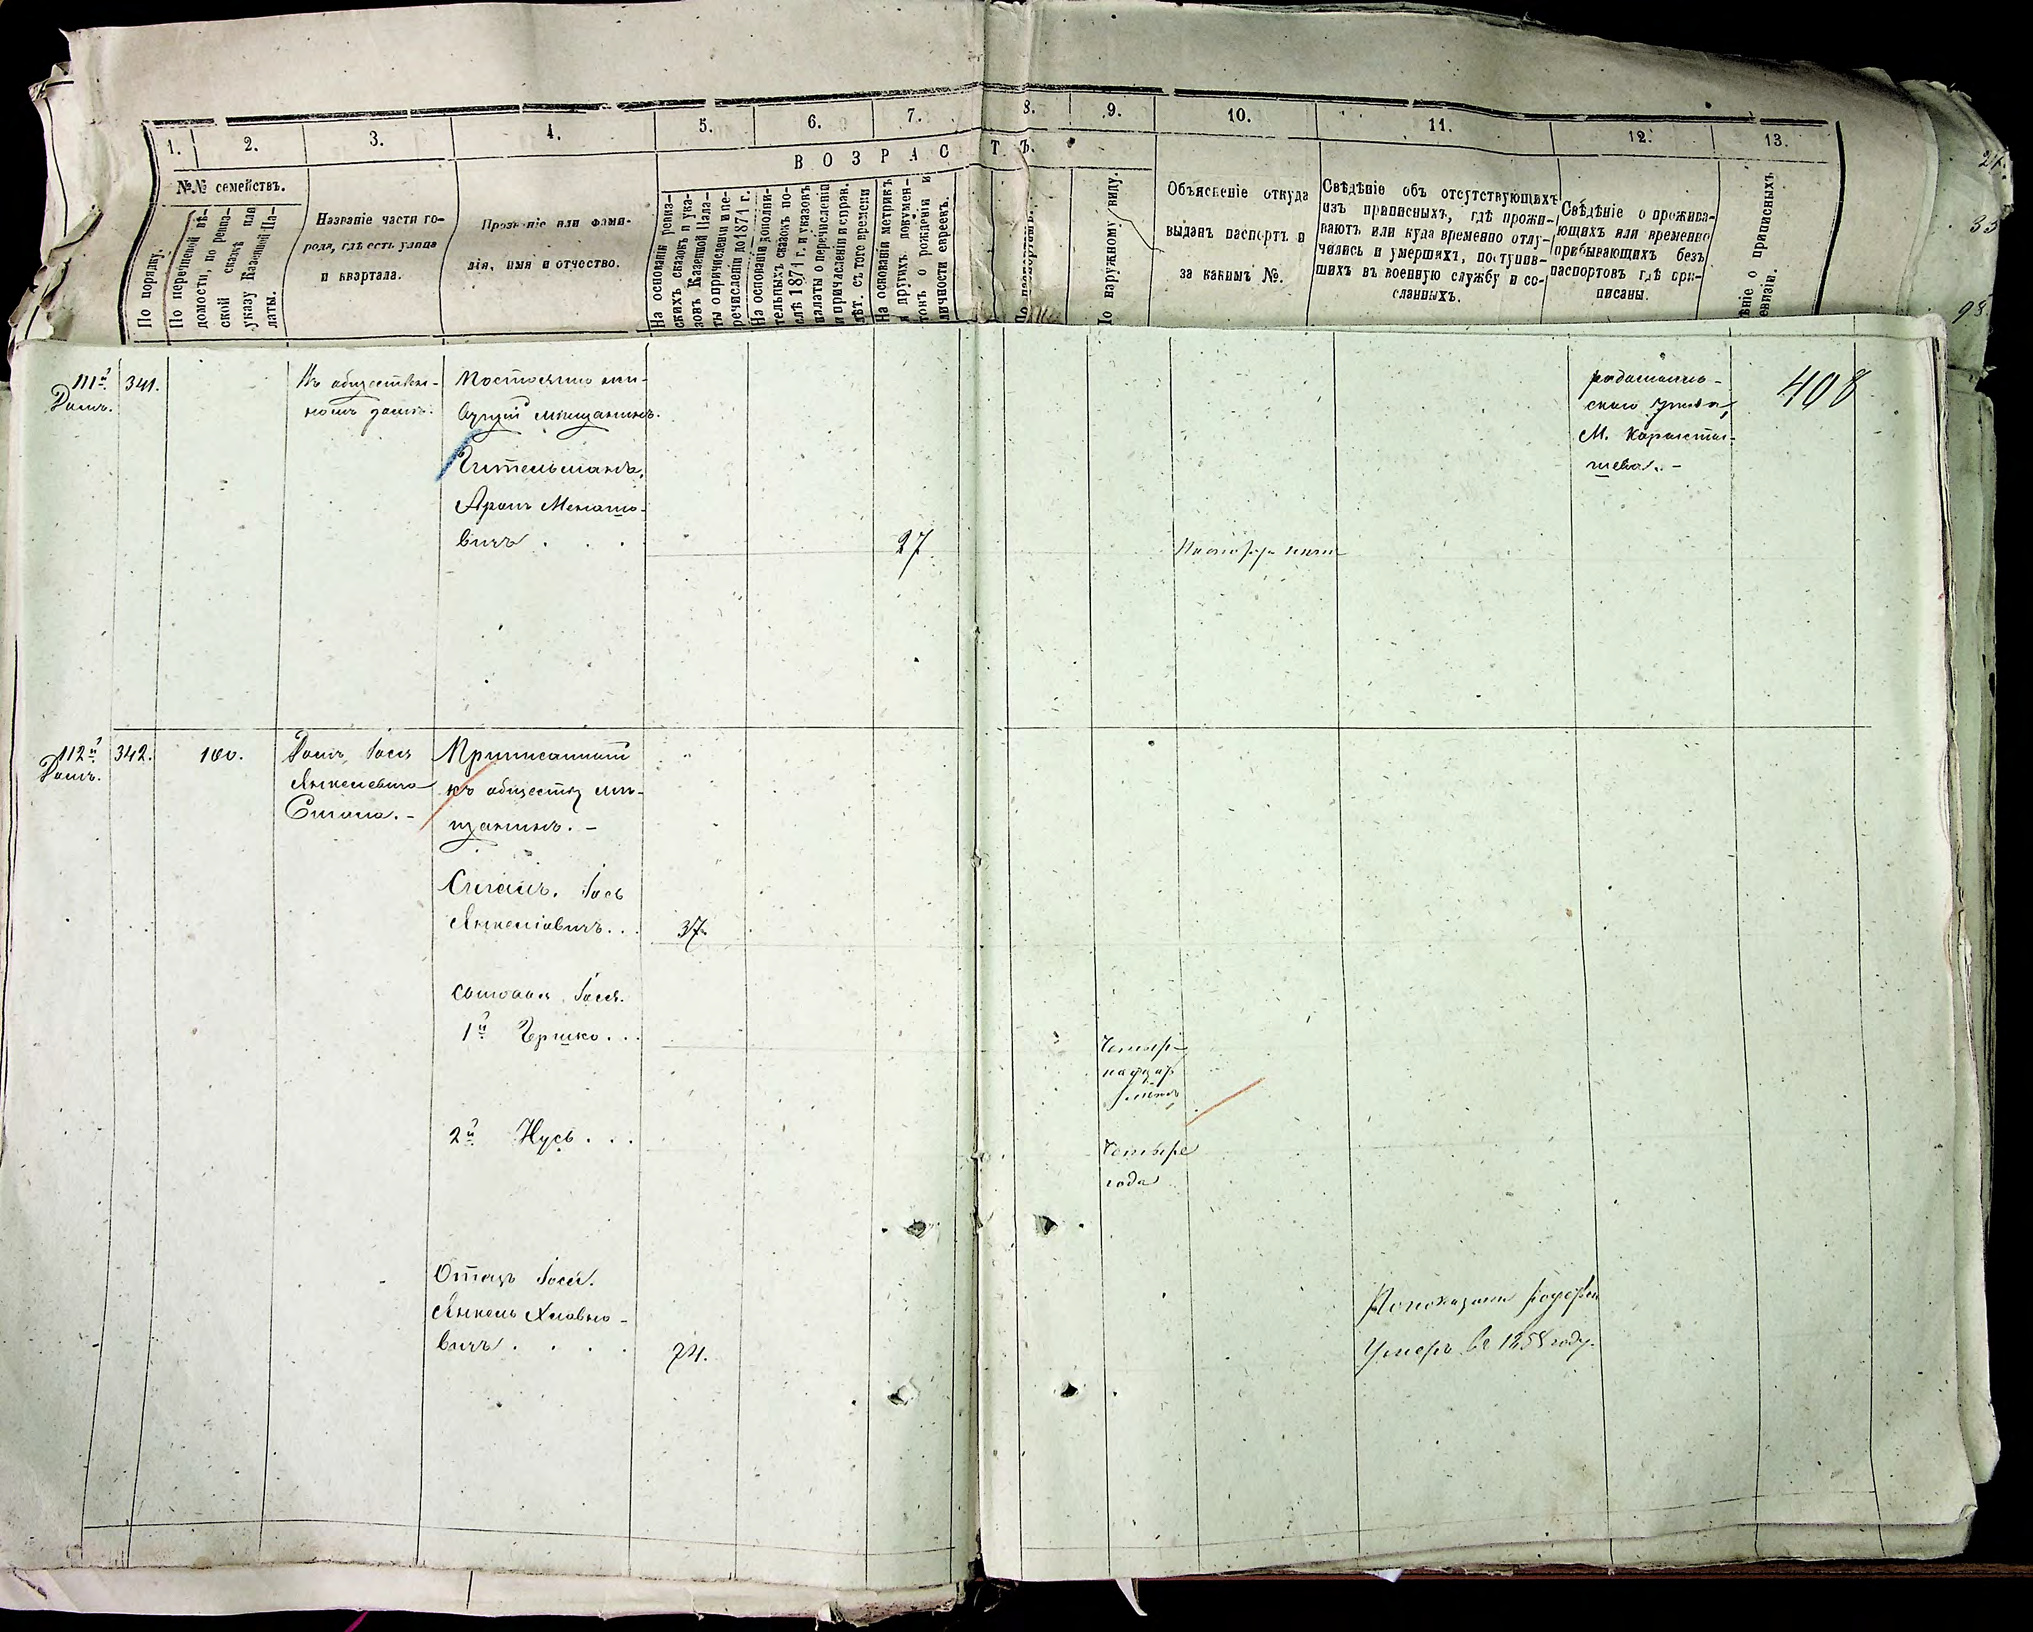 1.
2.
3.
4.
5.
6.
7.
8.
9.
10.
11.
12.
13.
В О З Р А С Т Ъ.
№№ семействъ.
По порядку.
По перечневой вѣ-
домости, по ревиз-
ской сказкѣ или
указу Казенной Па-
латы.
Названіе части го-
рода, гдѣ есть улица
и квартала.
Прозваніе или фами-
лія, имя и отчество.
На основаніи ревиз-
скихъ сказокъ и ука-
зовъ Казенной Пала-
ты о причисленіи и пе-
речисленіи до 1874 г.
На основаніи дополни-
тельныхъ сказокъ по-
слѣ 1874 г. и указовъ
палаты о перечисленіи
и причисленіи и справ.
лѣт. съ того времени
На основаніи метрикъ
и другихъ докумен-
товъ о рожденіи и
личности евреевъ.
По наружному виду.
Объясненіе откуда
выданъ паспортъ и
за какимъ №.
Свѣдѣніе объ отсутствующихъ
изъ приписныхъ, гдѣ прожи-
ваютъ или куда временно отлу-
чились и умершихъ, поступив-
шихъ въ военную службу и со-
сланныхъ.
Свѣдѣніе о прожива-
ющихъ или временно
прибывающихъ безъ
паспортовъ гдѣ при-
писаны.
ѣніе о приписныхъ
евизіи.
33
98.
111й
Домъ.
341.
Въ обществен-
номъ домѣ.
Постоянно жи-
вущій мѣщанинъ.
Гительманъ,
Аронъ Менашо-
вичъ . . .
27
Радомысль-
скаго уѣзда,
М. Коросты-
шева. -
408
112й
Домъ.
342.
100.
Домъ Іося
Янкелевича
Сигала. -
Приписанный
къ обществу мѣ-
щанинъ. -
Сигалъ, Іось
Янкеліовичъ. . .
37.
сыновья Іося.
1й Гершко. . .
Четыр-
надцат
2й Нусь . . .
Четыре
года
Отецъ Іося.
Янкель Хаовно-
вичъ . . . .
74.
По показанію
Умеръ въ 1858 году.